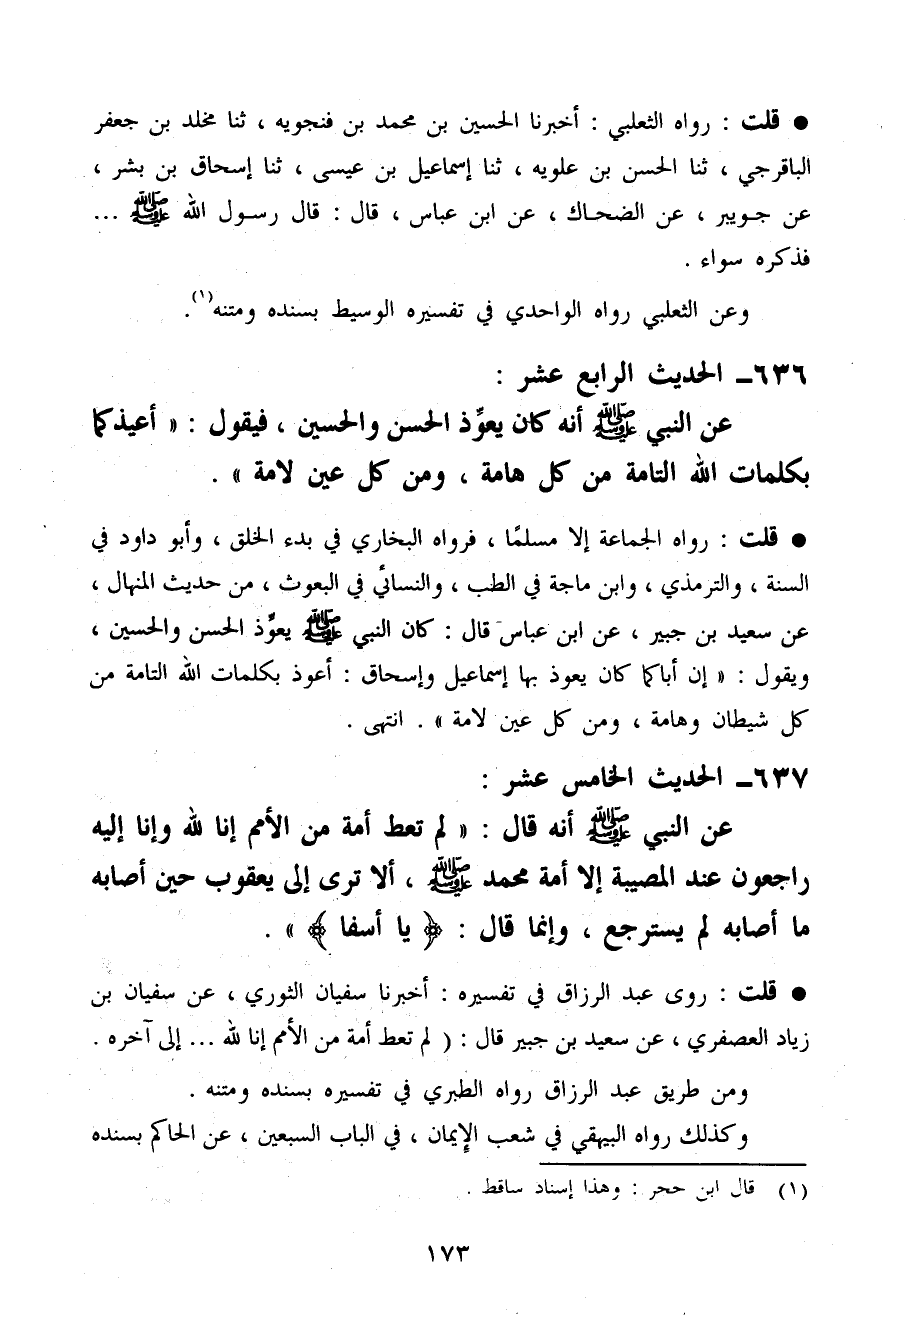 ● قلت : رواه الثعلبي : أخبرنا الحسين بن محمد بن فنجويه ، ثنا مخلد بن جعفر
الباقرجي ، ثنا الحسن بن علويه ، ثنا إسماعيل بن عيسى ، ثنا إسحاق بن بشر ،
عن جويبر ، عن الضحاك ، عن ابن عباس ، قال : قال رسول الله ﷺ ...
فذكره سواء .
وعن الثعلبي رواه الواحدي في تفسيره الوسيط بسنده ومتنه(١).
٦٣٦ـ الحديث الرابع عشر :
عن النبي ﷺ أنه كان يعوِّذ الحسن والحسين ، فيقول : « أعيذكما
بكلمات الله التامة من كل هامة ، ومن كل عين لامة » .
● قلت : رواه الجماعة إلا مسلمًا ، فرواه البخاري في بدء الخلق ، وأبو داود في
السنة ، والترمذي ، وابن ماجة في الطب ، والنسائي في البعوث ، من حديث المنهال ،
عن سعيد بن جبير ، عن ابن عباس قال : كان النبي ﷺ يعوِّذ الحسن والحسين ،
ويقول : « إن أباكما كان يعوذ بها إسماعيل وإسحاق : أعوذ بكلمات الله التامة من
كل شيطان وهامة ، ومن كل عين لامة » . انتهى .
٦٣٧ـ الحديث الخامس عشر :
عن النبي ﷺ أنه قال : « لم تعط أمة من الأمم إنا لله وإنا إليه
راجعون عند المصيبة إلا أمة محمد ﷺ ، ألا ترى إلى يعقوب حين أصابه
ما أصابه لم يسترجع ، وإنما قال : ﴿ يا أسفا ﴾ » .
● قلت : روى عبد الرزاق في تفسيره : أخبرنا سفيان الثوري ، عن سفيان بن
زياد العصفري ، عن سعيد بن جبير قال : ( لم تعط أمة من الأمم إنا لله ... إلى آخره .
ومن طريق عبد الرزاق رواه الطبري في تفسيره بسنده ومتنه .
وكذلك رواه البيهقي في شعب الإيمان ، في الباب السبعين ، عن الحاكم بسنده
(١) قال ابن حجر : وهذا إسناد ساقط .
١٧٣